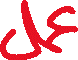 عمل